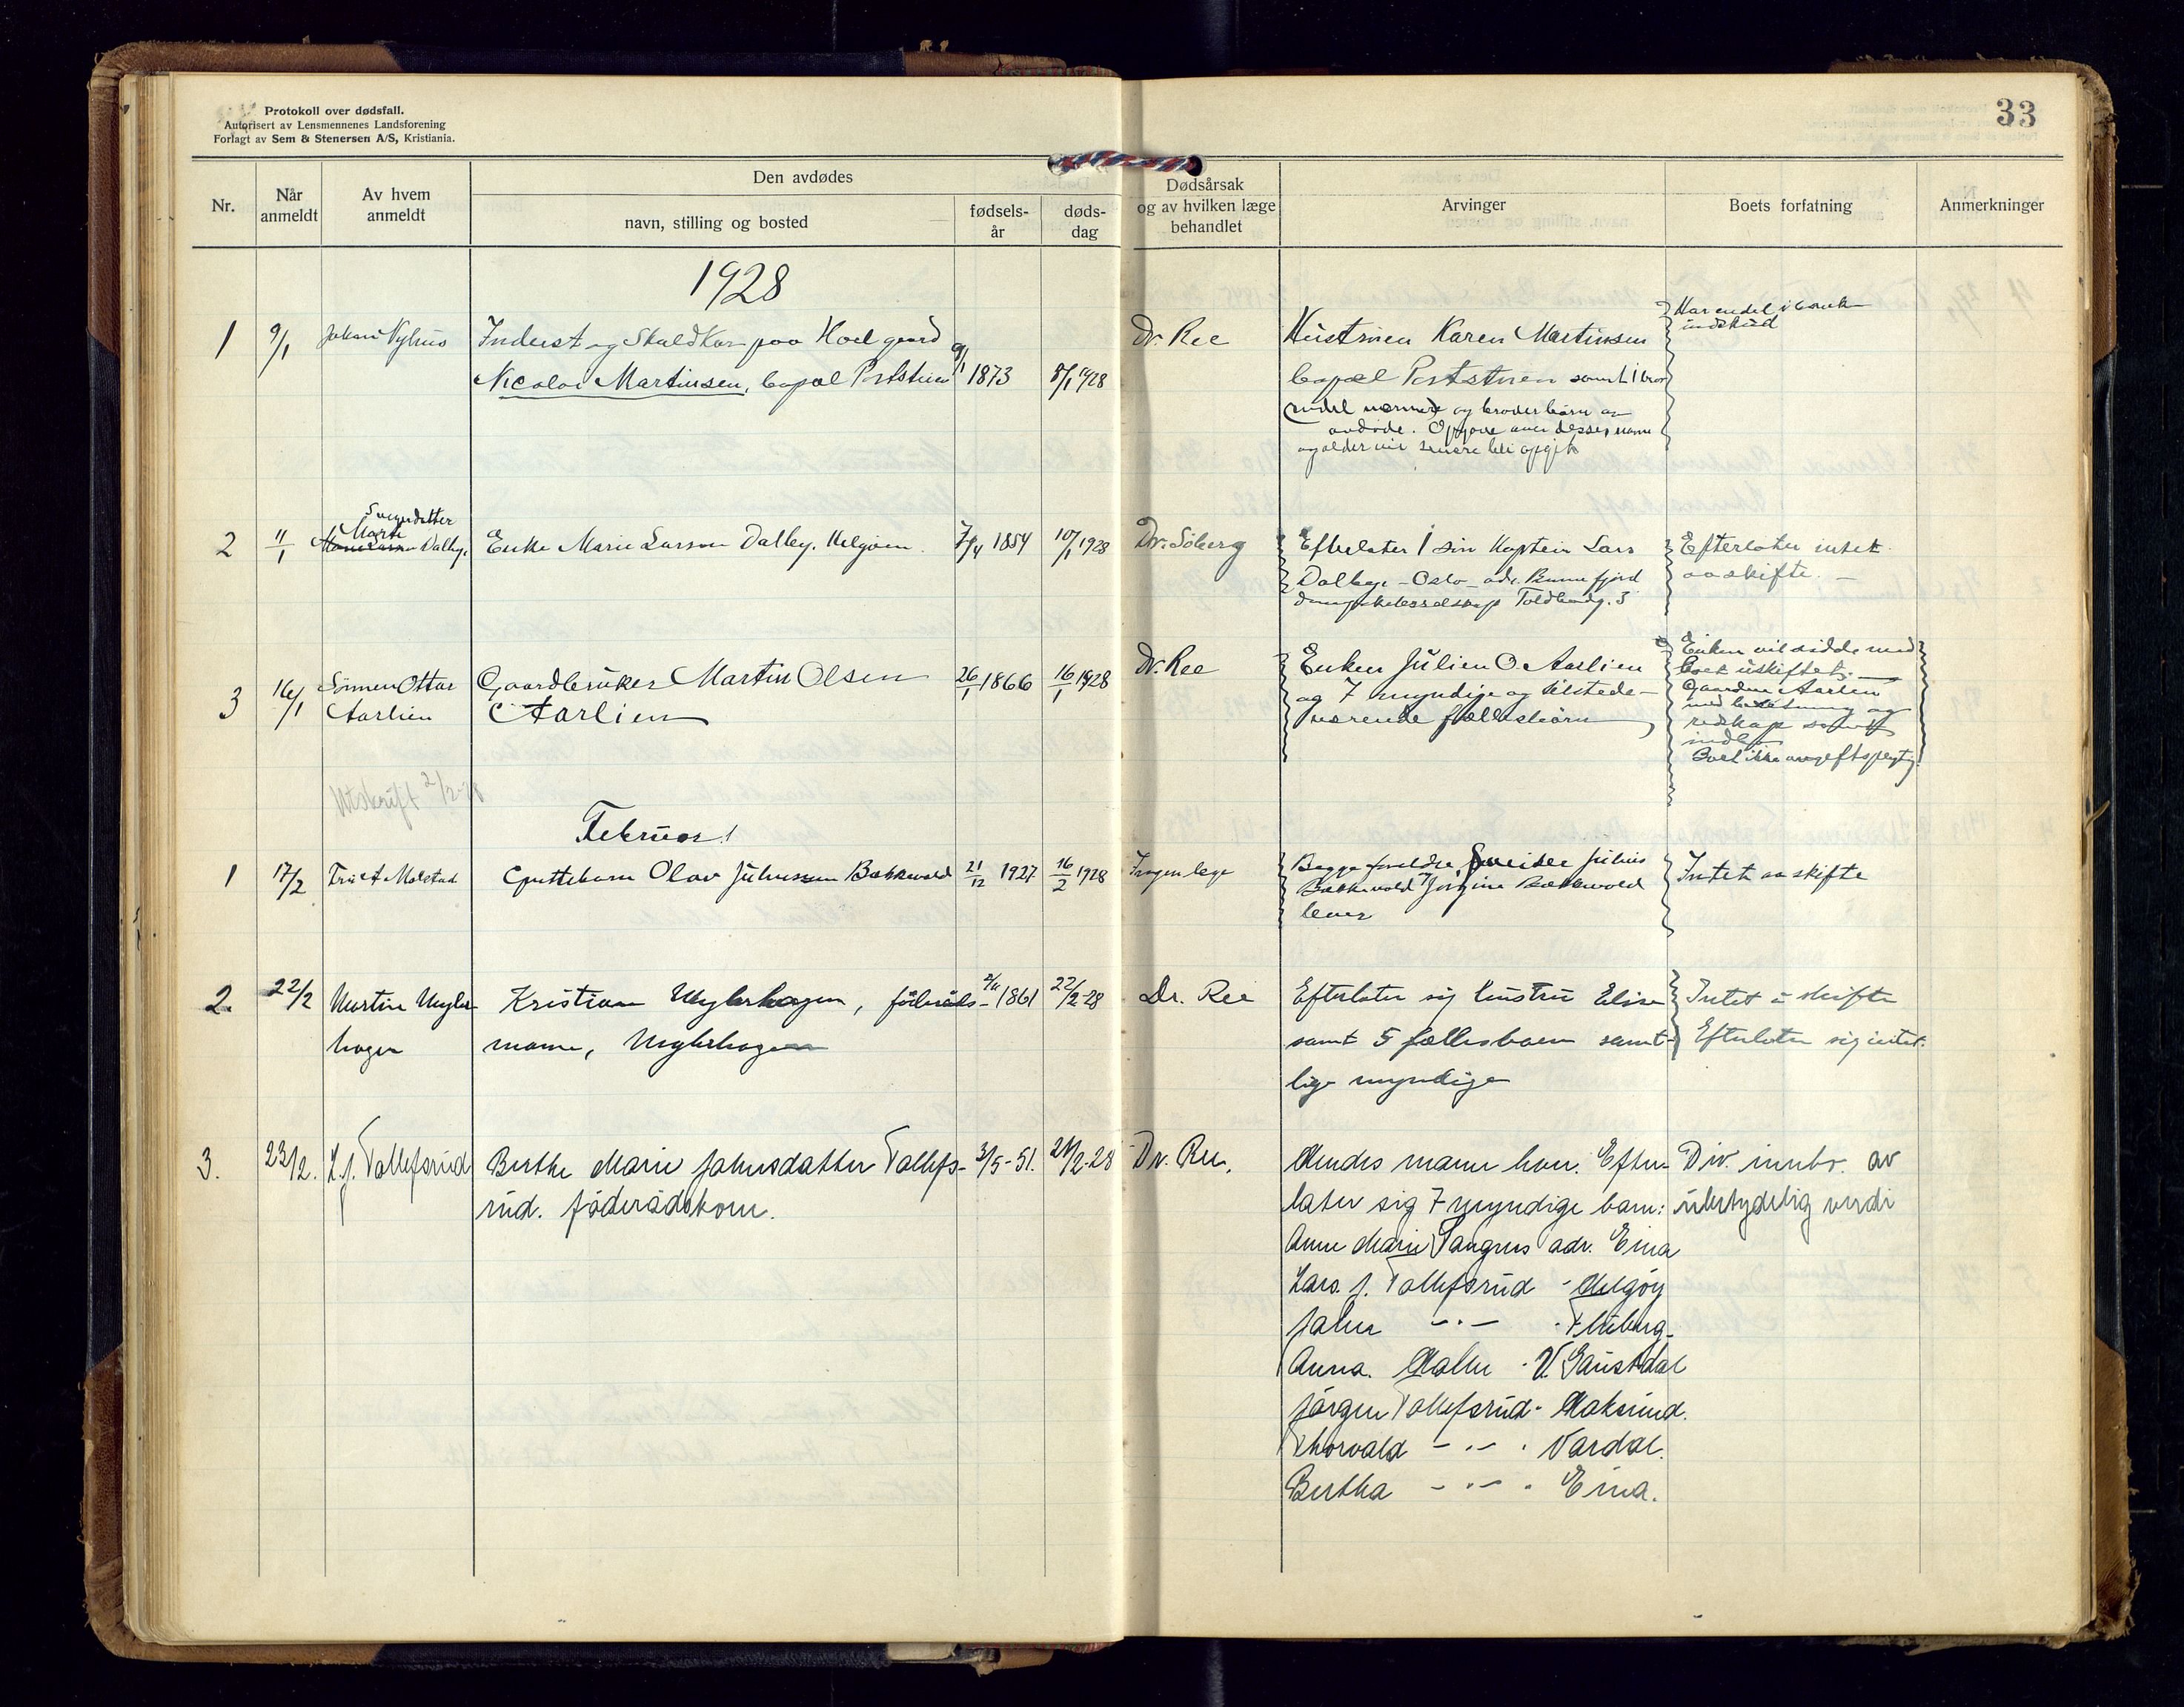 Protokoll over dødsfall.
Autorisert av Lensmennenes Landsforening
Forlagt av Sem & Stenersen A/S, Kristiania.
33
Nr.
Når anmeldt
Av hvem anmeldt
Den avdødes
navn, stilling og bosted
fødsels-år
døds-dag
Dødsårsak og av hvilken læge behandlet
Arvinger
Boets forfatning
Anmerkninger
1928
1 9/1 Johan Nyhus
Inderst og paa Hoel gaard
Nicolai Martinsen, 9/1 1873 8/1 1928
Dr. Ree
Hustruen Karen Martinsen
samt 1 bror
og broderbörn av
avdöde. Opgave over disses navn
og alder vil senere bli opgit
Har endel i bank
indskud
2 11/1 Svigerdatter
Marte Dalby.
Enke Marie Larsen Dalby. Helgöen 7/4 1854 10/1 1928
Dr. Söberg
Efterlater 1 sön Kaptein Lars
Dalbye - Oslo - adr. Bunnefjord
dampskibsselskap Toldbodg. 3
Efterlater intet
aa skifte. -
3 16/1 Sönnen Ottar
Aarlien
Gaardbruker Martin Olsen
Aarlien
26/1 1866 16/1 1928
Dr. Ree
Enken Julien O. Aarlien
og 7 myndige og tilstede-
værende fællesbörn
Enken vil sidde med
boet uskiftet.
Gaarden Aarlien
med besætning og
redskap samt
indbo
Boet ikke avgiftspligtig
Utskrift 2/2-28
Februar!
1 17/2 Fru A Mælstad
Guttebarn Olav Juliussen Bækkevold 21/12 1927 16/2 1928
Ingen læge
Begge foreldre, Sveiser Julius
Bækkevold Jorgine Bækkevold
lever
Intet aa skifte
2. 22/2 Martin Ugler-
hagen
Kristian Uglerhagen, föderåds-
mann, Uglerhagen
1861 22/2-28
Dr. Ree
Efterlater sig hustru Elise
samt 5 fællesbarn samt-
lige myndige
Intet å skifte
Efterlater sig intet.
3. 23/2. L. J. Tollefsrud
Berthe Marie Johnsdatter Tollefs-
rud. föderådskone.
3/5-51. 21/2-28
Dr. Ree.
Hendes mann lever. Efter-
later sig 7 myndige barn:
Anne Marie Sangnes adr. Eina
Lars. J. Tollefsrud - Helgöy
Johan - " - - Fluberg.
Anna. Holm - V. Gausdal
Jörgen Tollefsrud - Hoksund.
Thorvald - " - - Vardal.
Bertha - " - - Eina.
Div. innbo. av
ubetydelig verdi